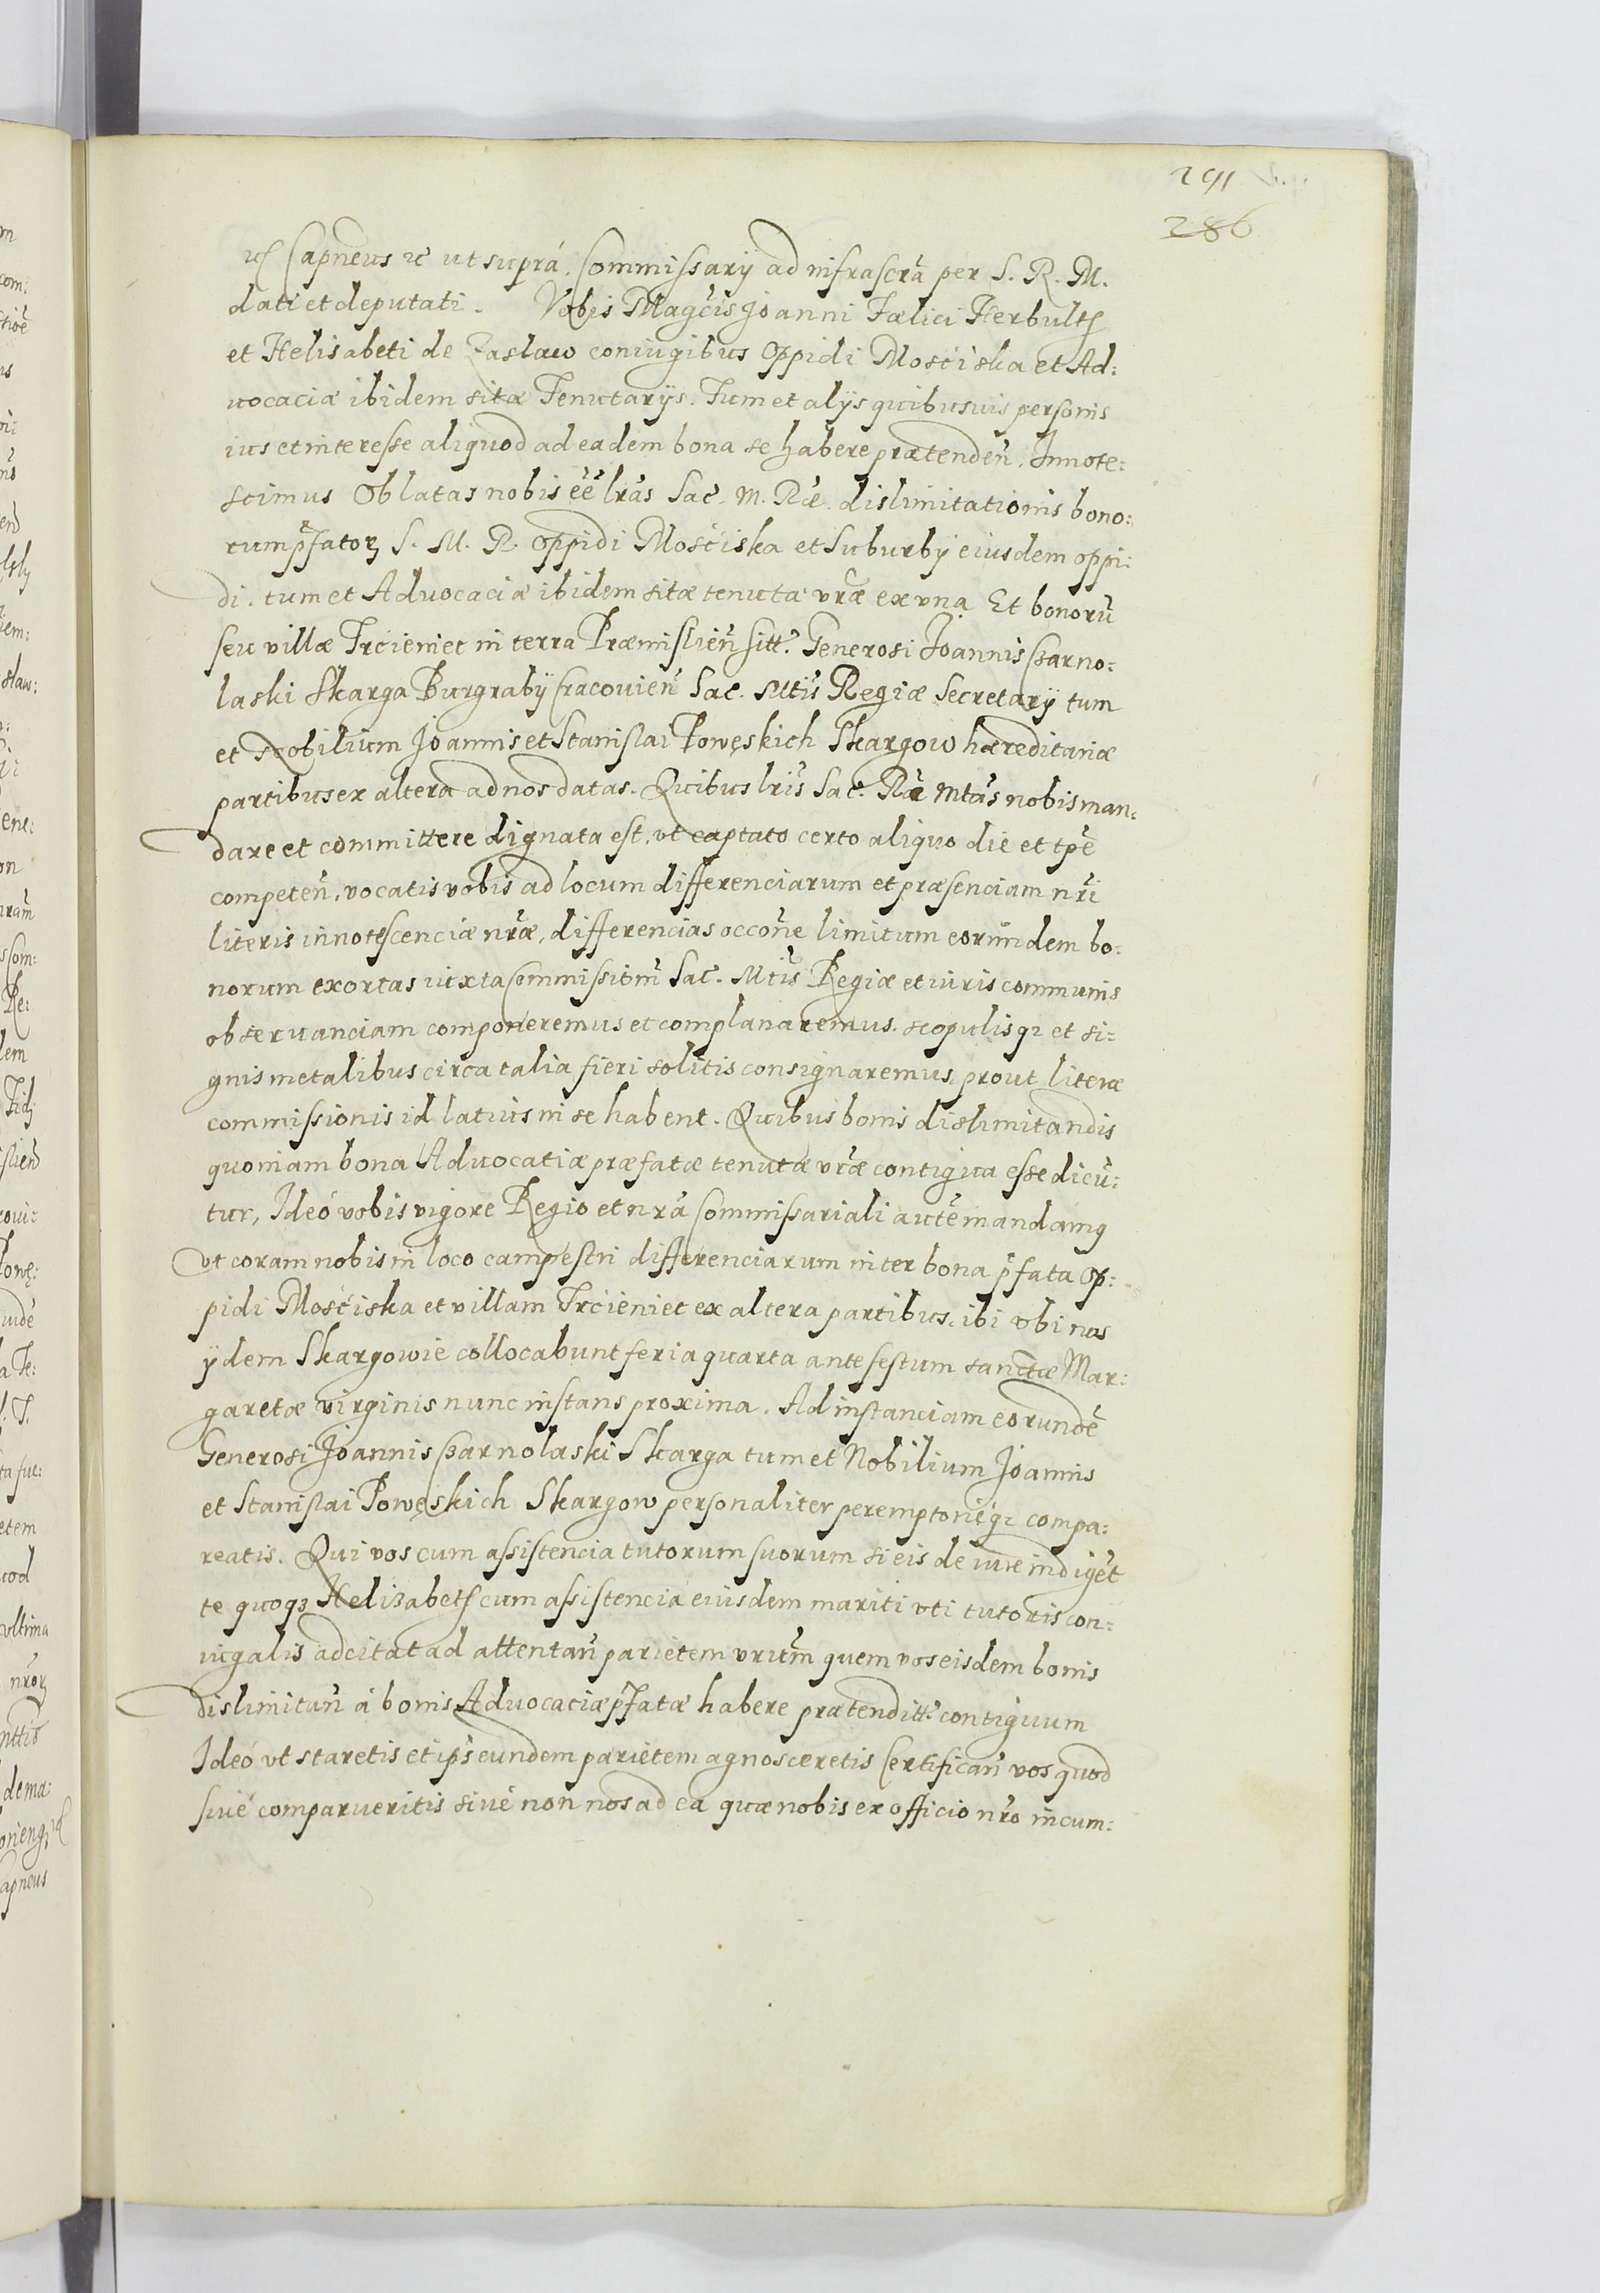 291
286
Capneus &c ut suprá. Commissarÿ ad infrascrã per S. R. M.
dati et deputati. Vobis Magcis Joanni Fælici Herbulth
et Helisabeti de Zaslaw coniugibus Oppidi Mosciska et Ad:
uocaciæ ibidem sitæ Tenutarÿs. Tum et alÿs quibusuis personis
ius et interesse aliquod ad eadem bona se habere prætendeñ. Innote:
scimus Oblatas nobis eẽ lrãs Sac. M. Ræ. dislimitationis bono:
rum pfator S. M. R. oppidi Mościska et Suburbÿ eiusdem oppi:
di. tum et Aduocaciæ ibidem sitæ tenutæ vræ ex vna Et bonorũ
seu villæ Trcieniec in terra Præmislień sitt. Generosi Joannis Czarno:
laski Skarga Burgrabÿ Cracovień Sac. Mtis Regiæ Secretarÿ tum
et Nobilium Joannis et Stanislai Powęskich Skargow hæreditariæ
partibus ex altera ad nos datas. Quibus lris Sac. Ræ Mtas nobis man:
dare et committere dignata est, vt captato certo aliquo die et tpe
competeñ, vocatis vobis ad locum differenciarum et præsenciam nri
literis innotescenciæ nræ, differencias occõne limitum eorundem bo:
norum exortas iuxta Commissionm Sac. Mtis Regiæ et iuris communis
obseruanciam componeremus et complanaremus. scopulisq; et si:
gnis metalibus circa talia fieri solitis consignaremus, prout literæ
commissionis id latius in se habent. Quibus bonis dislimitandis
quoniam bona Aduocatiæ præfatæ tenutæ vræ contigua esse dicũ:
tur, Ideó vobis vigore Regio et nrã Commissariali autẽ mandamg
vt coram nobis in loco campestri differenciarum inter bona pfata Op:
pidi Mościska et villam Trcieniec ex altera partibus, ibi vbi nos
ÿdem Skargowie collocabunt feria quarta ante festum sanctæ Mar:
garetæ virginis nunc instans proxima. Ad instanciam eorundẽ
Generosi Joannis Czarnolaski Skarga tum et Nobilium Joannis
et Stanislai Powęskich Skargow personaliter peremptorieq; compa:
reatis. Qui vos cum assistencia tutorum suorum si eis de iure indiget
te quoq; Helizabeth cum assistencia eiusdem mariti vti tutoris con:
iugalis adcitat ad attentañ parietem vrum quem vos eisdem bonis
dislimitañ á bonis Aduocaciæ pfatæ habere prætenditt. contiguum
Ideó vt staretis et ips eundem parietem agnosceretis Certificañ vos quod
siué comparueritis siué non nos ad ea quæ nobis ex officio nro incum: